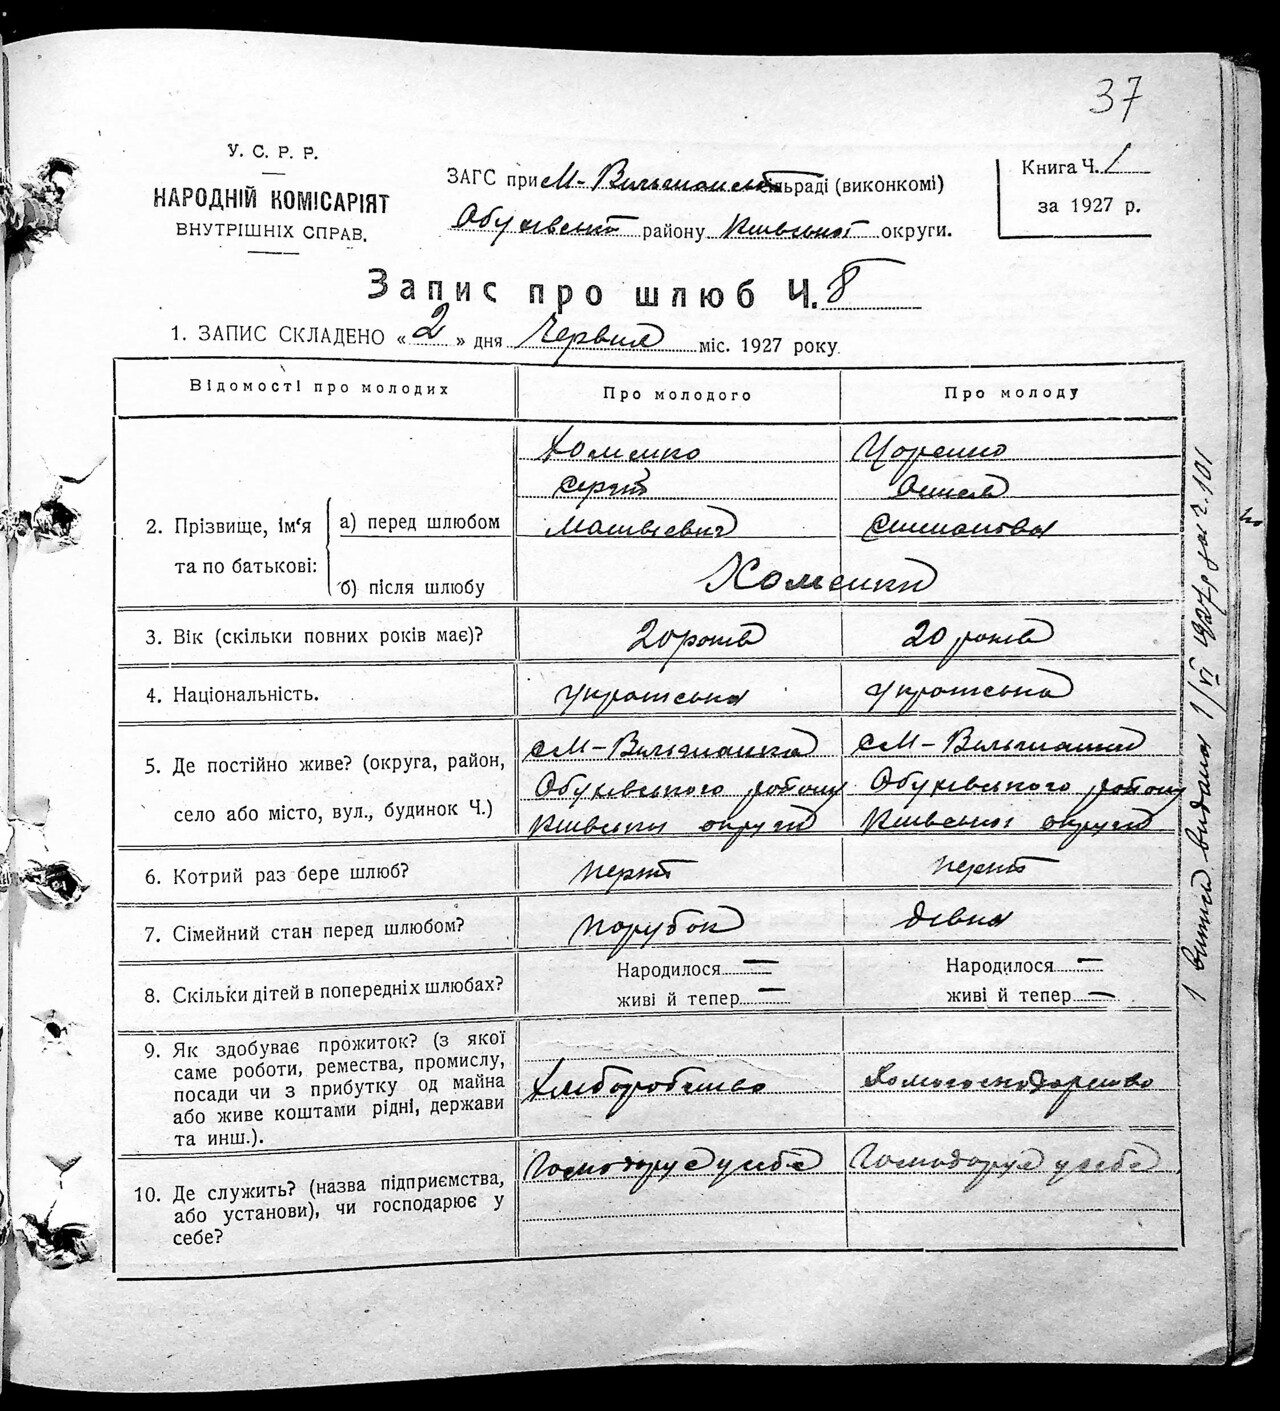 37
У. С. Р. Р.
НАРОДНІЙ КОМІСАРІЯТ
ВНУТРІШНІХ СПРАВ.
ЗАГС при М-Вільшанській сільраді (виконкомі)
Обухівськ. району Київської округи.
Книга Ч. 1
за 1927 р.
Запис про шлюб Ч. 8
1. ЗАПИС СКЛАДЕНО «2» дня Червня міс. 1927 року
Відомості про молодих
Про молодого
Про молоду
2. Прізвище, ім'я
та по батькові:
а) перед шлюбом
б) після шлюбу
Хоменко
Сергій
Матвієвич
Цоренко
Симонова
Хоменки
3. Вік (скільки повних років має)?
20 років
20 років
4. Національність.
Українська
Українська
5. Де постійно живе? (округа, район,
село або місто, вул., будинок Ч.)
с М-Вільшанка
Обухівського району
Київської округи
с М-Вільшанка
Обухівського району
Київської округи
6. Котрий раз бере шлюб?
перший
перший
7. Сімейний стан перед шлюбом?
парубок
дівка
8. Скільки дітей в попередніх шлюбах?
Народилося —
живі й тепер —
Народилося —
живі й тепер —
9. Як здобуває прожиток? (з якої
саме роботи, ремества, промислу,
посади чи з прибутку од майна
або живе коштами рідні, держави
та инш.).
Хліборобство
Домогосподарство
10. Де служить? (назва підприємства,
або установи), чи господарює у
себе?
Господарує у себе
Господарує у себе
1 витяг видана 1/VI 1927 р за ч. 101